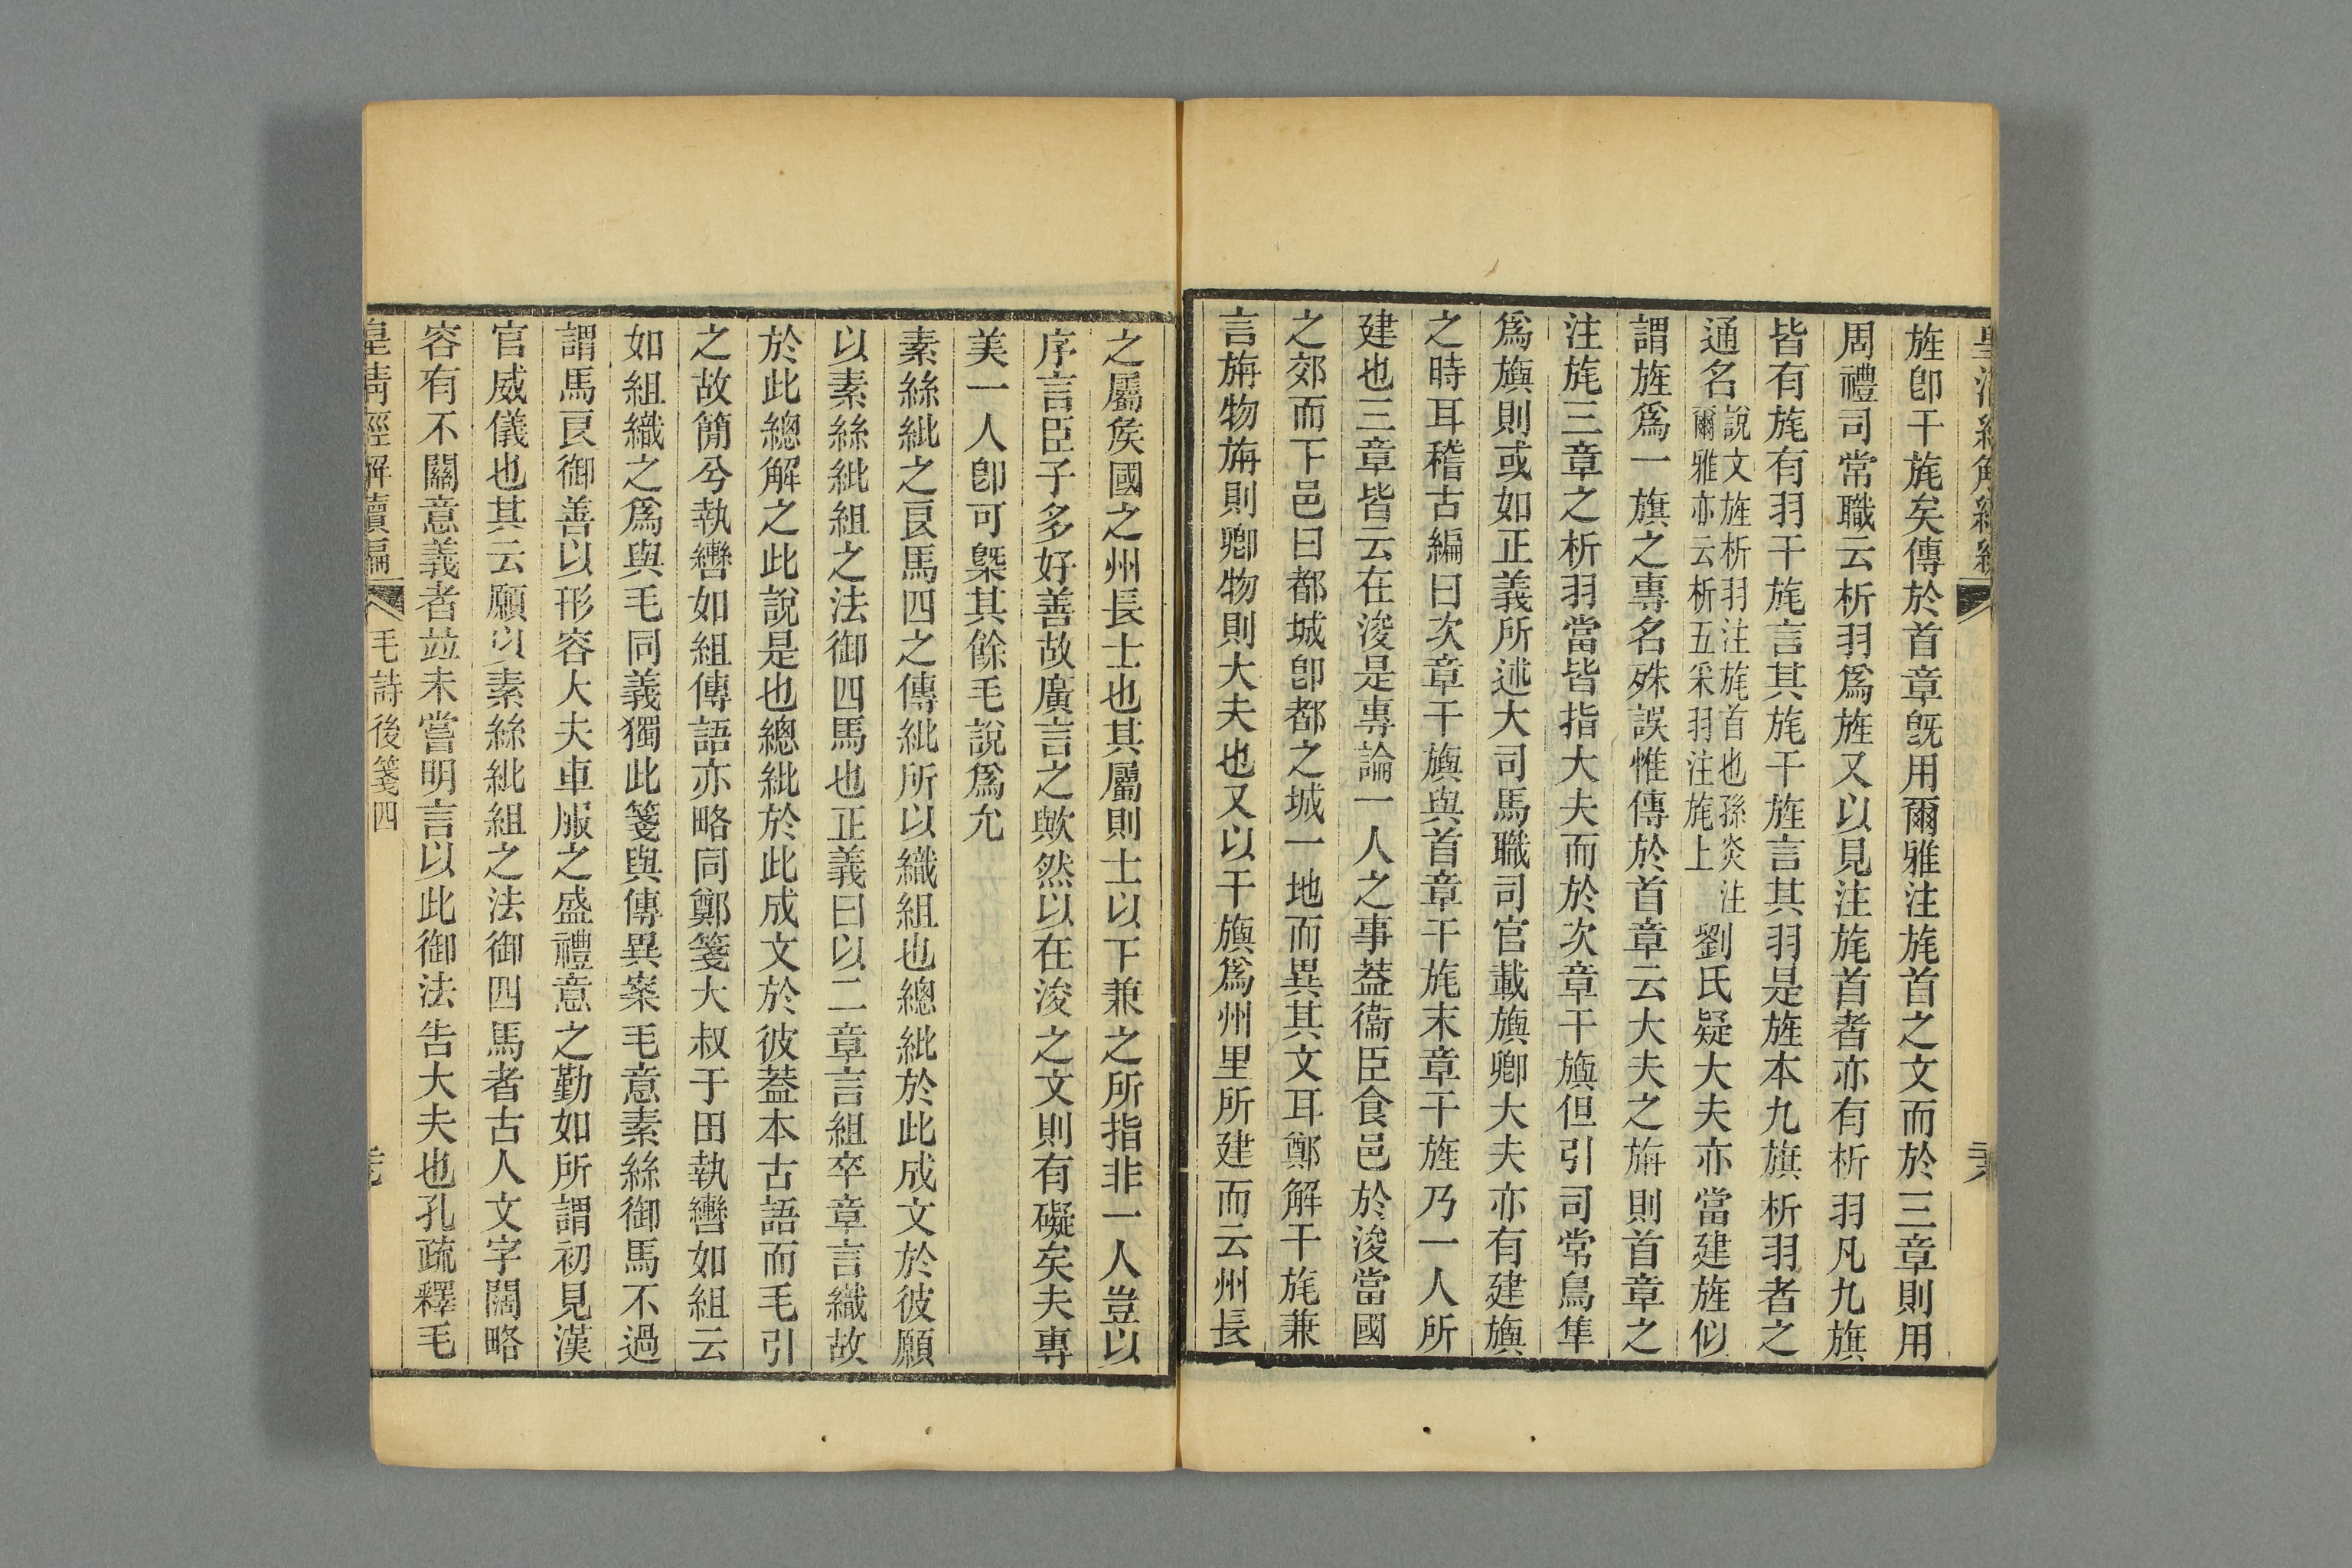 旌卽干旄矣傳於首章旣用爾雅注旄首之文而於三章則用
周禮司常職云析羽爲旌又以見注旄首者亦有析羽凡九旗
皆有旄有羽干旄言其旄干旌言其羽是旌本九旗析羽者之
通名說文旌析羽注旄首也孫炎注爾雅亦云析五采羽注旄上劉氏疑大夫亦當建旌似
謂旌爲一旗之專名殊誤惟傳於首章云大夫之旃則首章之
注旄三章之析羽當皆指大夫而於次章干旟但引司常鳥隼
爲旟則或如正義所述大司馬職司官載旟卿大夫亦有建旟
之時耳稽古編曰次章干旟與首章干旄末章干旌乃一人所
建也三章皆云在浚是專論一人之事葢衞臣食邑於浚當國
之郊而下邑曰都城卽都之城一地而異其文耳鄭解干旄兼
言旃物旃則卿物則大夫也又以干旟爲州里所建而云州長
之屬矦國之州長士也其屬則士以下兼之所指非一人豈以
序言臣子多好善故廣言之歟然以在浚之文則有礙矣夫專
美一人卽可槩其餘毛說爲允
素絲紕之良馬四之傳紕所以織組也總紕於此成文於彼願
以素絲紕組之法御四馬也正義曰以二章言組卒章言織故
於此總解之此說是也總紕於此成文於彼葢本古語而毛引
之故簡兮執轡如組傳語亦略同鄭箋大叔于田執轡如組云
如組織之爲與毛同義獨此箋與傳異案毛意素絲御馬不過
謂馬良御善以形容大夫車服之盛禮意之勤如所謂初見漢
官威儀也其云願以素絲紕組之法御四馬者古人文字闊略
容有不關意義者竝未嘗明言以此御法告大夫也孔疏釋毛
皇淸經解續編
毛詩後箋四